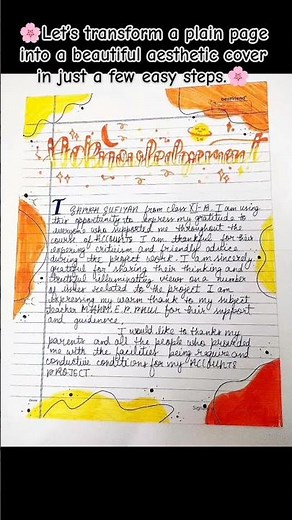 🌸Let's transform a plain page
into a beautiful aesthetic cover
in just a few easy steps.🌸
Acknowledgement
I SAMRA SUFIYAN from class XI-A. I am using
this opportunity to express my gratitude to
everyone who supported me throughout the
course of ACCOUNTS I am thankful for their
aspiring criticism and friendly advice
during the project work. I am sincerely
grateful for sharing their thinking and
illuminating view on a number
of issues related to the project I am
expressing my warm thank to my subject
teacher for their support
and guidence.
I would like to thanks my
parents and all the people who provided
me with the facilities being require and
conductive conditions for my ACCOUNTS
PROJECT.